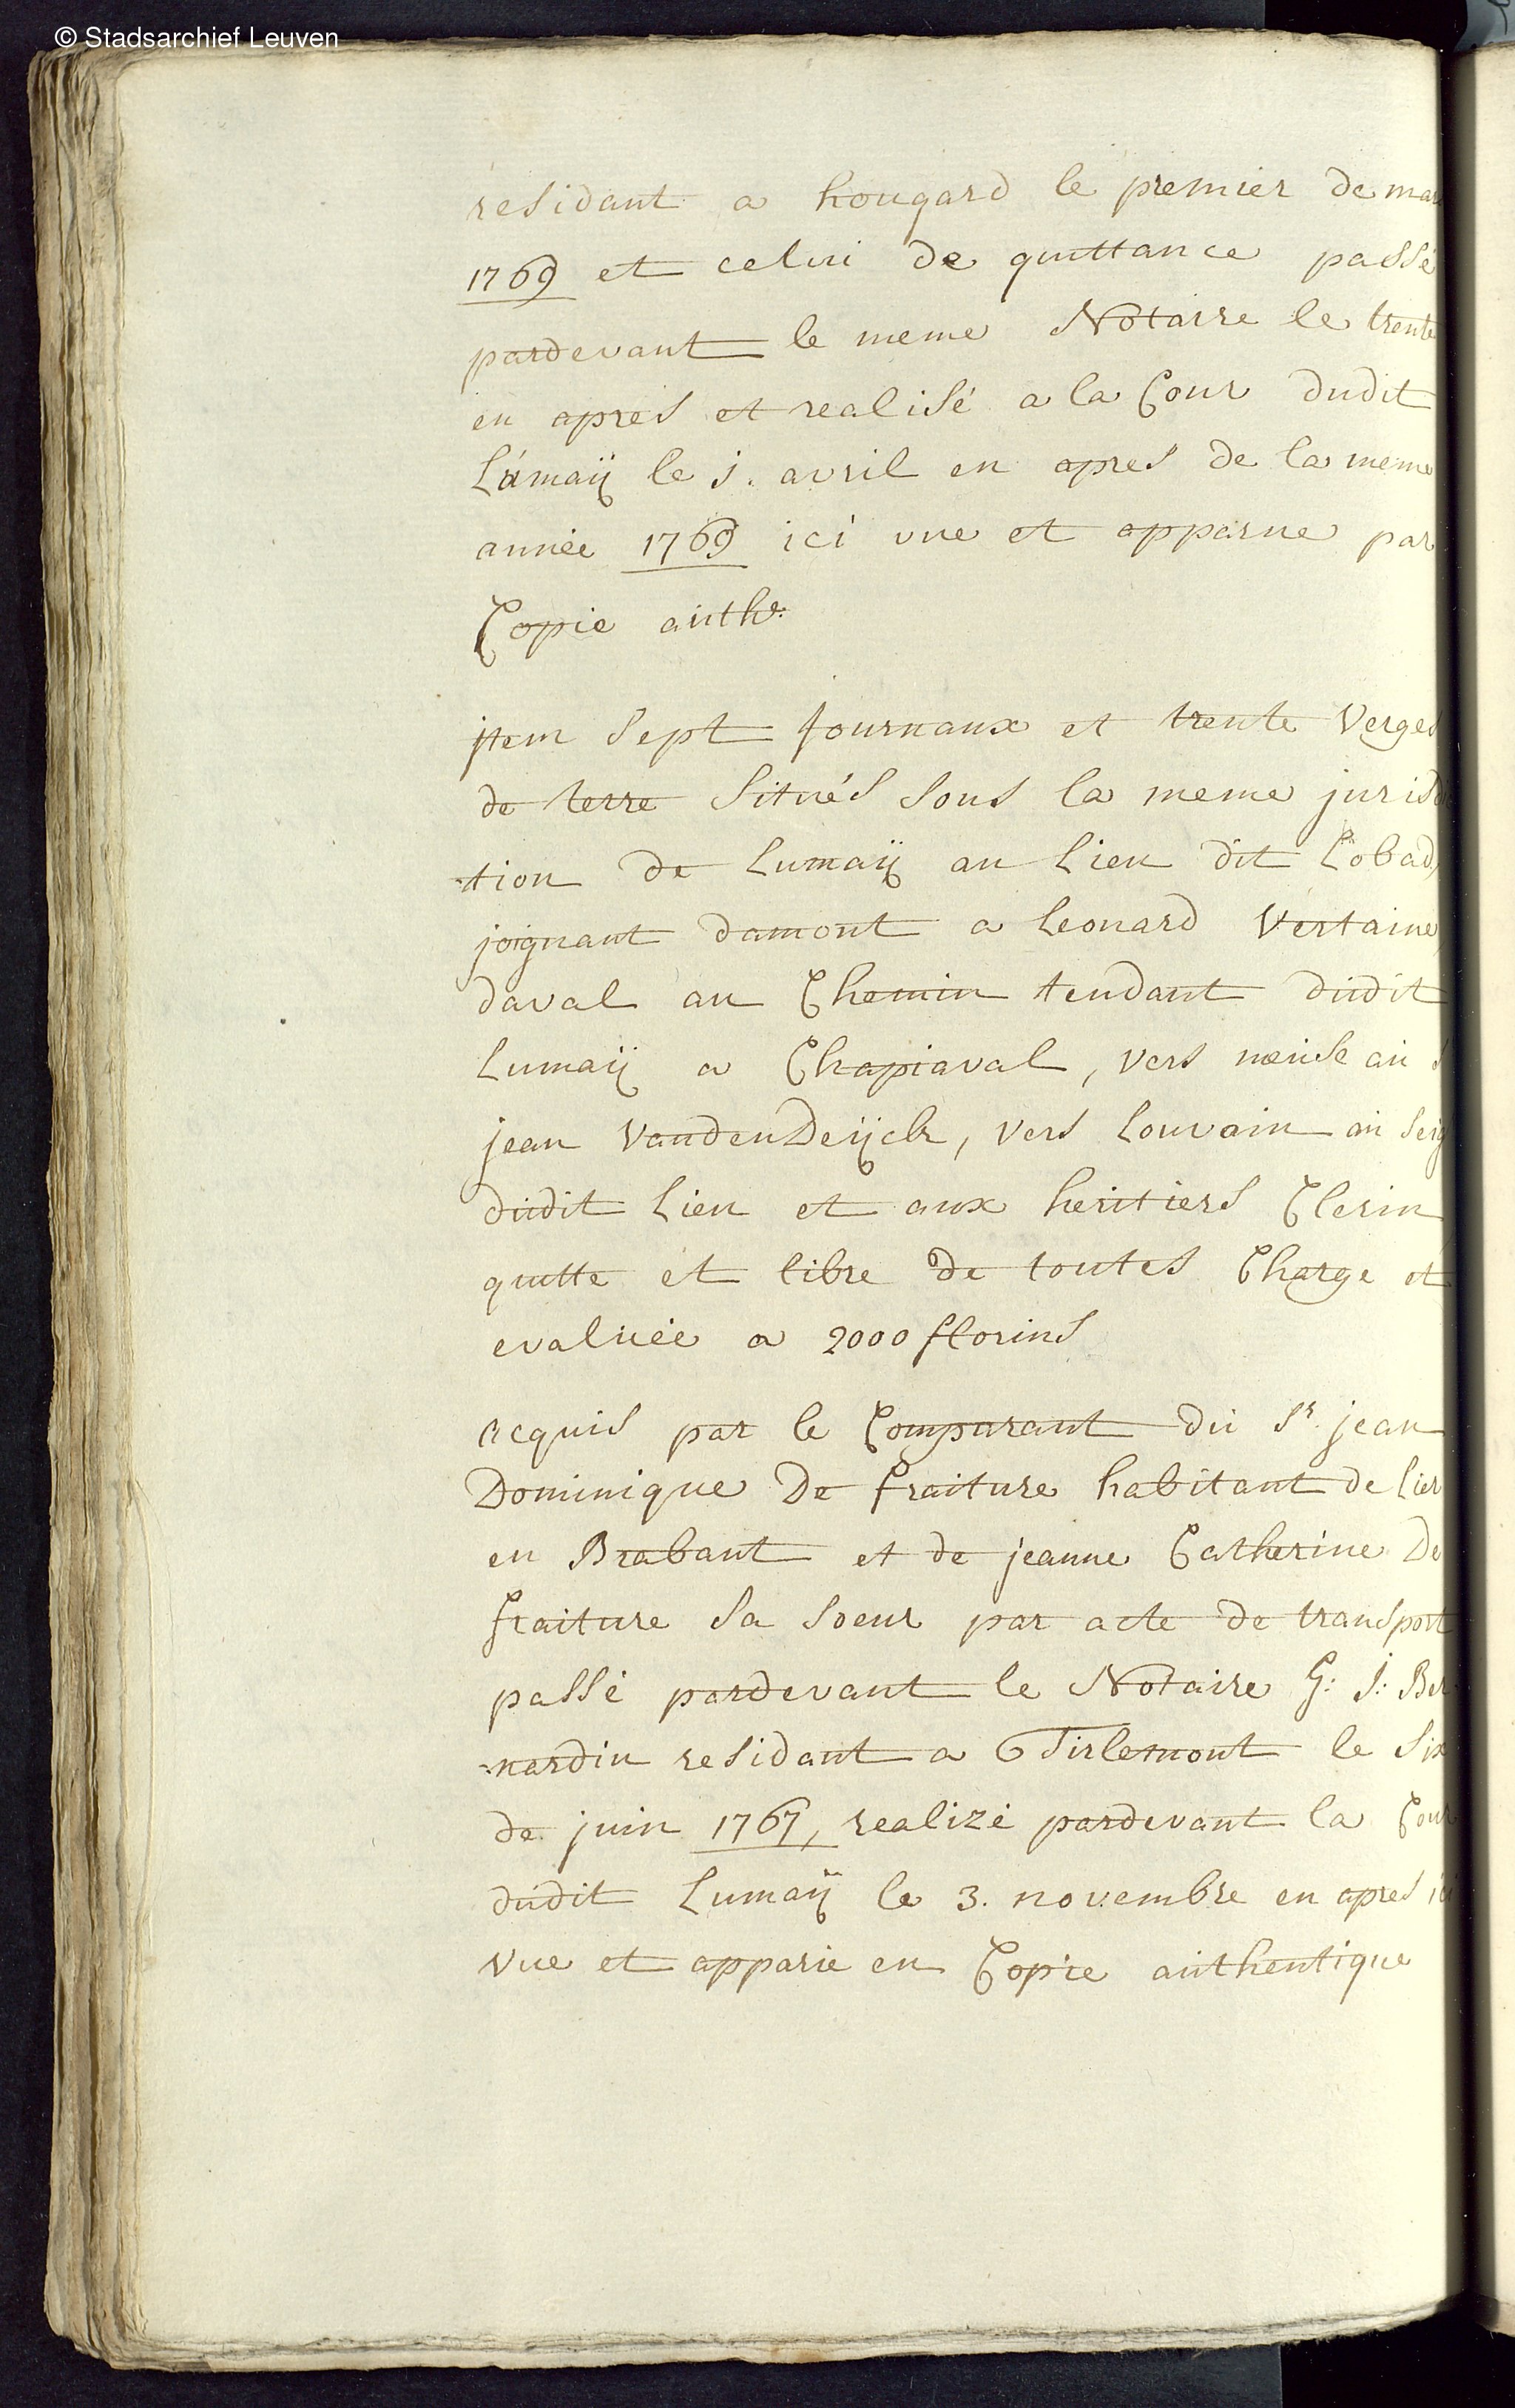 © Stadsarchief Leuven
residant a hougard le premier de mar
1769 et celui de quittance passé
pardevant le meme Notaire le trente
en apres et realisé a la Cour dudit
Lumaÿ le 1. avril en apres de la meme
année 1769 ici vue et apparue par
Copie auth:
jtem sept journaux et trente verges
de terre situés sous la meme jurisdi
-tion de Lumaÿ au lieu dit Lobad,
joignant damont a Leonard Vertaine
daval au Chemin tendant dudit
Lumaÿ a Chapiaval, vers meuse au s
jean VandenDeÿck, vers Louvain au seig
dudit lieu et aux heritiers Clerin
quitte et libre de toutes Charge et
evaluée a 2000 florins
acquis par le Comparant du Sr. jean
Dominique De fraiture habitant de lier
en Brabant et de jeanne Catherine De
fraiture sa soeur par acte de transport
passé pardevant le Notaire G: J: Ber
-nardin residant a Tirlemont le six
de juin 1767, realizé pardevant la Cour
dudit Lumaÿ le 3. novembre en apres ici
vue et apparie en Copie authentique